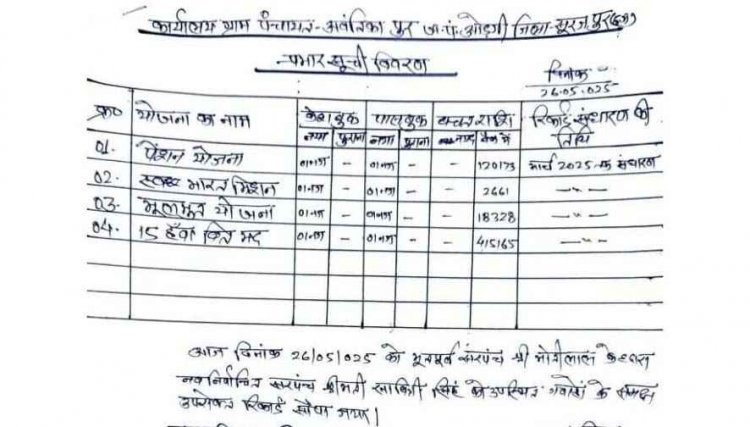 कार्यालय ग्राम पंचायत - अवंतिका पुर ज.पं. ओड़गी जिला - सूरजपुर (छ.ग)
प्रभार सूची विवरण
दिनांक
26.05.025
क्र० योजना का नाम केशबुक पासबुक बचत राशि रिकार्ड संधारण की तिथि
नया पुराना नया पुराना नगद बैंक में
01. पेंशन योजना 01 नग - 01 नग - - 120173 मार्च 2025 तक संधारण
02. स्वच्छ भारत मिशन 01 नग - 01 नग - - 2661 -〃-
03. मूलभूत योजना 01 नग - 01 नग - - 18328 -〃-
04. 15 हवाँ वित्त मद 01 नग - 01 नग - - 415165 -〃-
आज दिनांक 26/05/025 को भूतपूर्व सरपंच श्री मोतीलाल के द्वारा
नव निर्वाचित सरपंच श्रीमती सिंह को उपस्थित गवाहों के समक्ष
उपरोक्त रिकार्ड सौंपा गया।